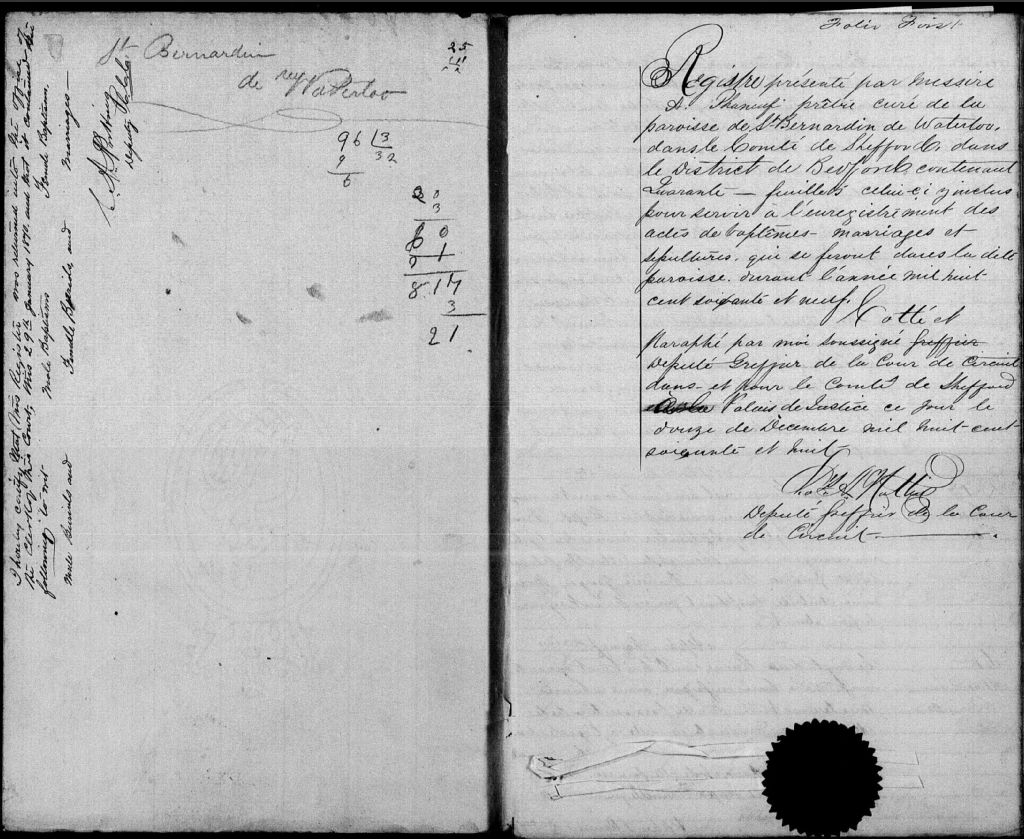 St Bernardin
de Waterloo
25
11
96 3
9 32
6
20
3
60
21
817
3
21
I hereby certify that this Register was returned into the Office of
the Clerk of this Court, this 29th January 1870, and that it contained the
following to wit
Male Baptisms Female Baptisms,
Male Burials and Female Burials and Marriages
Deputy
Folio First
Registre présenté par messire
A. Phaneuf prêtre curé de la
paroisse de St Bernardin de Waterloo,
dans le Comté de Shefford, dans
le District de Bedford, contenant
Quarante — feuillets celui-ci y inclus
pour servir à l'enregistrement des
actes de baptêmes marriages et
sépultures, que se feront dans la dite
paroisse durant l'année mil huit
cent soixante et neuf. Cotté et
Paraphé par moi soussigné greffier
Deputé Greffier de la Cour de Circuit
dans et pour le Comté de Shefford
Palais de Justice ce jour le
douze de Décembre mil huit cent
soixante et huit
Deputé Greffier de la Cour
de Circuit